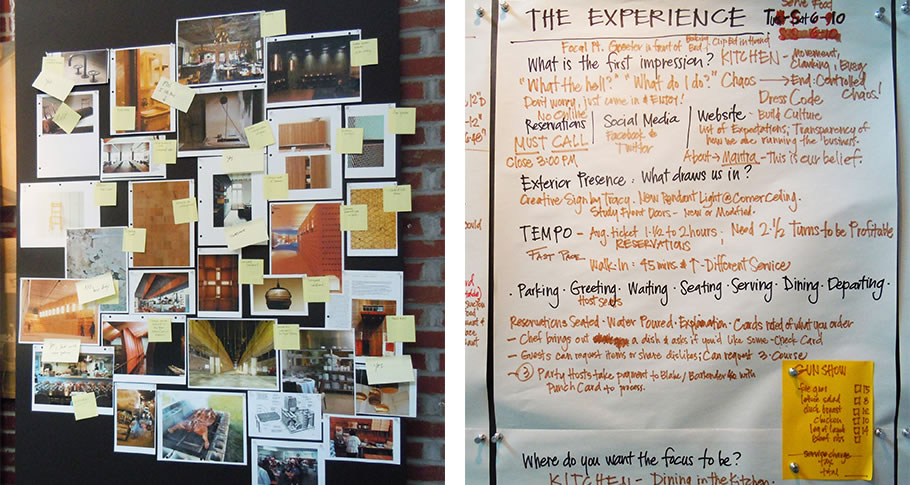 yes
THE EXPERIENCE
Serve Food
Tues-Sat 6-10
Focal Pt. Greeter is front of
What is the first impression?
KITCHEN - Movement,
Clanking, Energy
"What the hell?" "What do I do?" Chaos → End: Controlled
Chaos!
Don't worry, just come in & Enjoy!
Dress Code
No Online
Reservations
MUST CALL
Close 3:00 PM
Social Media
Facebook &
Twitter
Website - Build Culture
List of Expectations, Transparency of
how we are running the business.
About → Mantra - This is our belief.
Exterior Presence: What draws us in?
Creative Sign by Tracy. New Pendant Light @ Corner Ceiling.
Study Front Doors - New or Modified.
TEMPO - Avg. ticket 1-1/2 to 2 hours. Need 2-1/2 Turns to be Profitable
RESERVATIONS
FAST PACE
Walk-In: 45 mins & ↑ - Different Service
· Parking · Greeting · Waiting · Seating · Serving · Dining · Departing ·
Host seats
Reservations Seated · Water Poured · Explanation · Cards noted of what you order
- Chef brings out a dish & asks if you'd like some - Check Card
- Guests can request items or share dislikes; Can request 3-Course
- ③ Party Hosts take payment to Blake/Bartender etc with
Punch Card to process.
GUN SHOW
foie gras 15
lobster salad 8
duck breast 12
chicken 10
leg of lamb 14
beef ribs
service charge
tax
total
Where do you want the focus to be?
KITCHEN - Dining in the Kitchen.